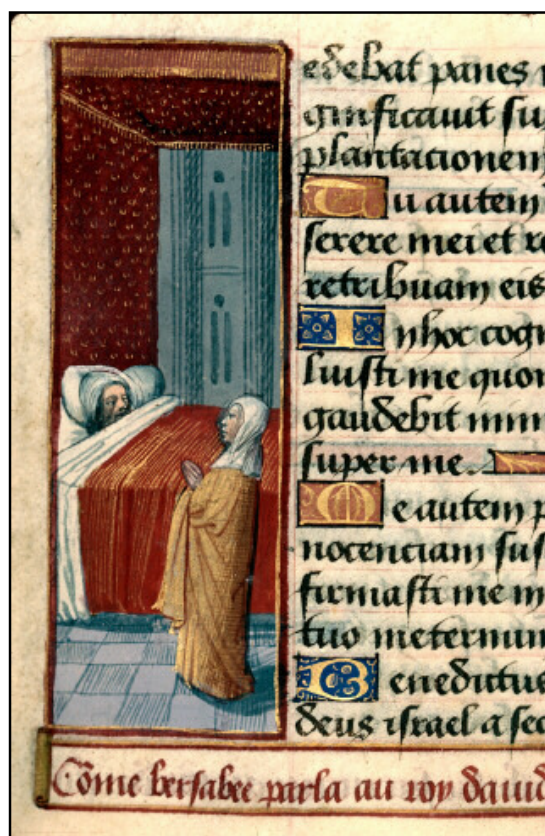 edebat panes
gnificauit su
plantacionem
Tu autem
serere mei et re
retribuam eis
In hoc cogn
luisti me quon
gaudebit inim
super me.
Me autem p
nocenciam sus
firmasti me in
tuo ineternum
Benedictus
deus israel a sec
Cõme bersabee parla au roy dauid